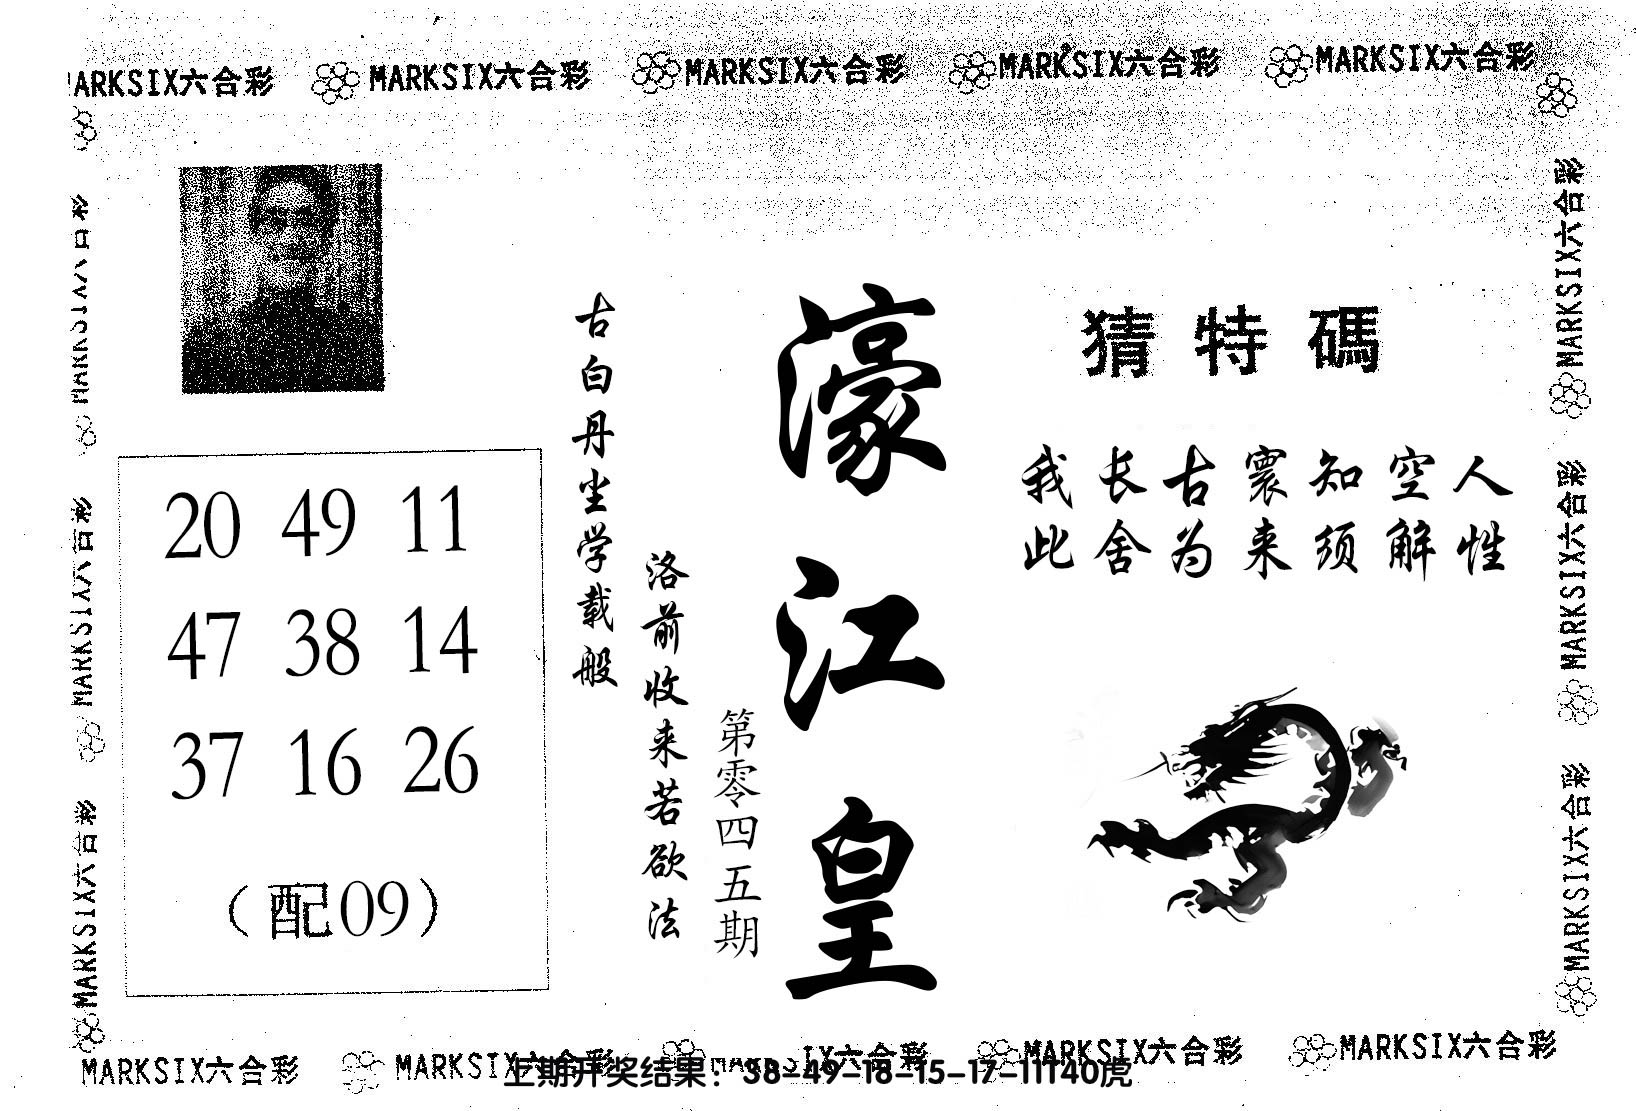 MARKSIX六合彩 MARKSIX六合彩 MARKSIX六合彩 MARKSIX六合彩 MARKSIX六合彩
MARKSIX六合彩
MARKSIX六合彩
MARKSIX六合彩
20 49 11
47 38 14
37 16 26
(配09)
古白丹坐学载般
洛前收来若欲法
第零四五期
濠江皇
猜特碼
我长古寰知空人
此舍为来须解性
MARKSIX六合彩
MARKSIX六合彩
MARKSIX六合彩
MARKSIX六合彩 MARKSIX六合彩 MARKSIX六合彩 MARKSIX六合彩 MARKSIX六合彩
上期开奖结果：38-49-18-15-17-11T40虎